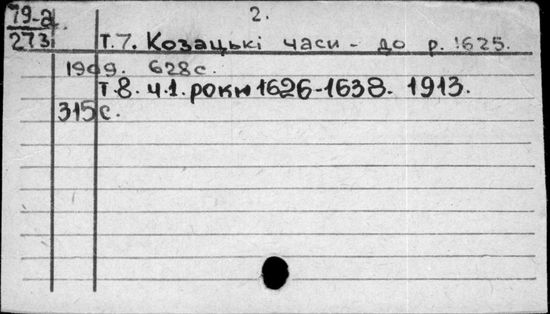 79-а 2.
273 Т.7. Козацькі часи - до р. 1625.
1909. 628 с.
Т.8. ч.1. роки 1626-1638. 1913.
315 с.